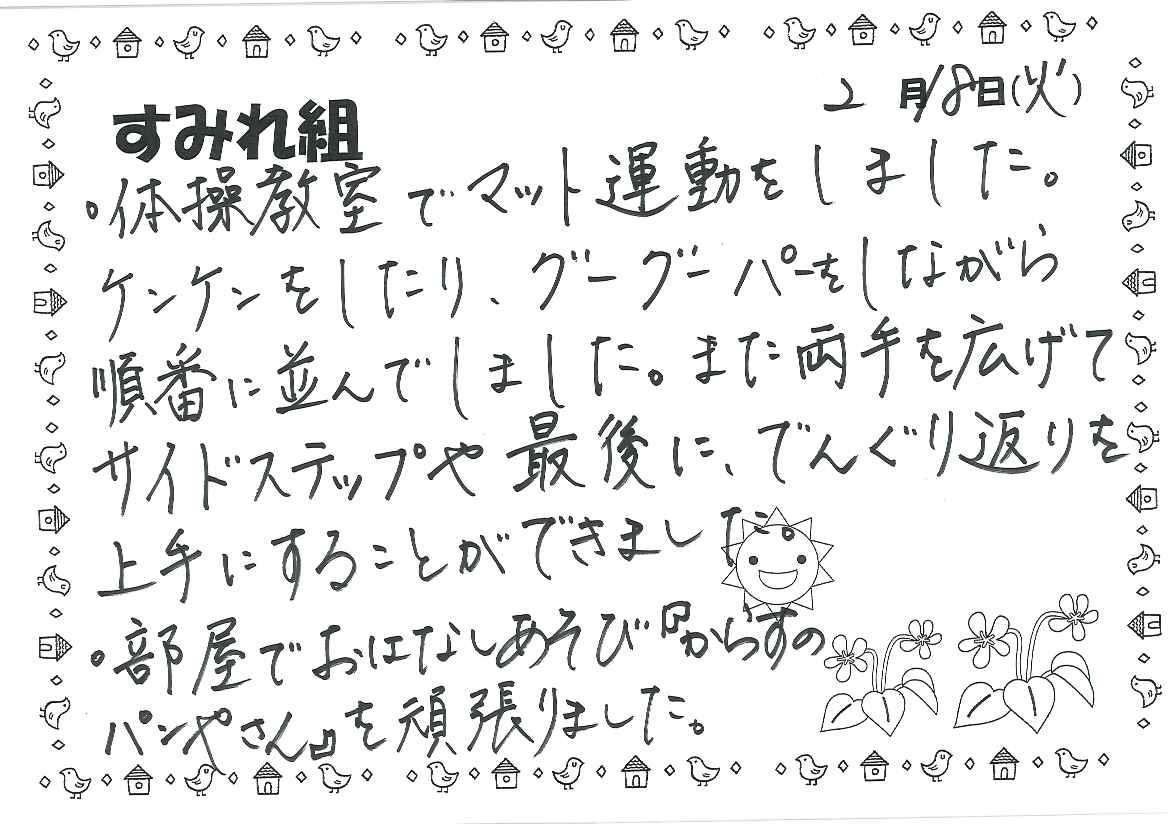 2月18日(火)
すみれ組
・体操教室でマット運動をしました。
ケンケンをしたり、グーグーパーをしながら
順番に並んでしました。また両手を広げて
サイドステップや最後に、でんぐり返りを
上手にすることができました。
・部屋でおはなしあそび『からすの
パンやさん』を頑張りました。